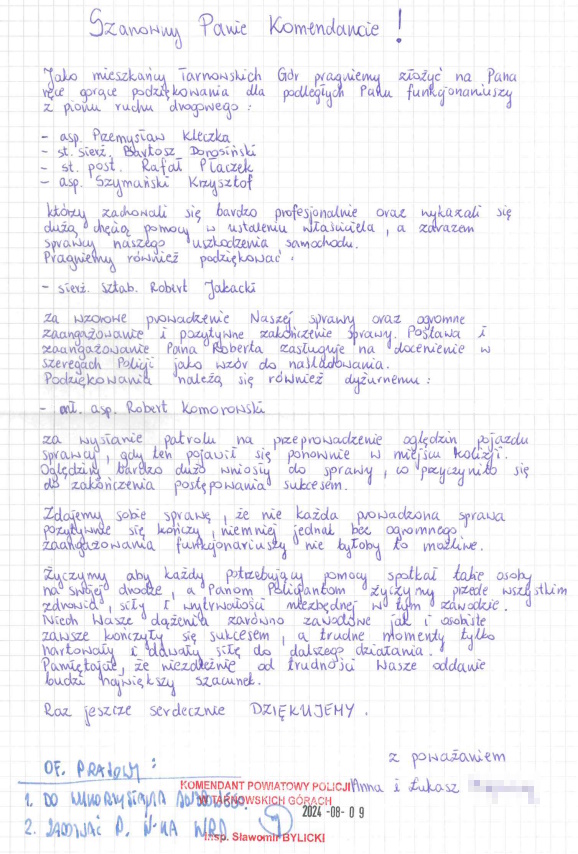 Szanowny Panie Komendancie!
Jako mieszkańcy Tarnowskich Gór pragniemy złożyć na Pana
ręce gorące podziękowania dla podległych Panu funkcjonariuszy
z pionu ruchu drogowego:
- asp. Przemysław Kleczka
- st. sierż. Bartosz Dorosiński
- st. post. Rafał Płaczek
- asp. Szymański Krzysztof
którzy zachowali się bardzo profesjonalnie oraz wykazali się
dużą chęcią pomocy w ustaleniu właściciela, a zarazem
sprawcy naszego uszkodzenia samochodu.
Pragniemy również podziękować:
- sierż. sztab. Robert Jakacki
za wzorowe prowadzenie Naszej sprawy oraz ogromne
zaangażowanie i pozytywne zakończenie sprawy. Postawa i
zaangażowanie Pana Roberta zasługuje na docenienie w
szeregach Policji jako wzór do naśladowania.
Podziękowania należą się również dyżurnemu:
- mł. asp. Robert Komorowski
za wysłanie patrolu na przeprowadzenie oględzin pojazdu
sprawcy, gdy ten pojawił się ponownie w miejscu kolizji.
Oględziny bardzo dużo wniosły do sprawy, co przyczyniło się
do zakończenia postępowania sukcesem.
Zdajemy sobie sprawę, że nie każda prowadzona sprawa
pozytywnie się kończy, niemniej jednak bez ogromnego
zaangażowania funkcjonariuszy nie byłoby to możliwe.
Życzymy aby każdy potrzebujący pomocy spotkał takie osoby
na swojej drodze, a Panom Policjantom życzymy przede wszystkim
zdrowia, siły i wytrwałości niezbędnej w tym zawodzie.
Niech Wasze dążenia zarówno zawodowe jak i osobiste
zawsze kończyły się sukcesem, a trudne momenty tylko
hartowały i dawały siłę do dalszego działania.
Pamiętajcie, że niezależnie od trudności Wasze oddanie
budzi największy szacunek.
Raz jeszcze serdecznie DZIĘKUJEMY.
z poważaniem
Anna i Łukasz
OF. PRASOWY:
KOMENDANT POWIATOWY POLICJI
W TARNOWSKICH GÓRACH
1. DO WYKORZYSTANIA
2024 -08- 0 9
2. N-KA WRD
insp. Sławomir BYLICKI